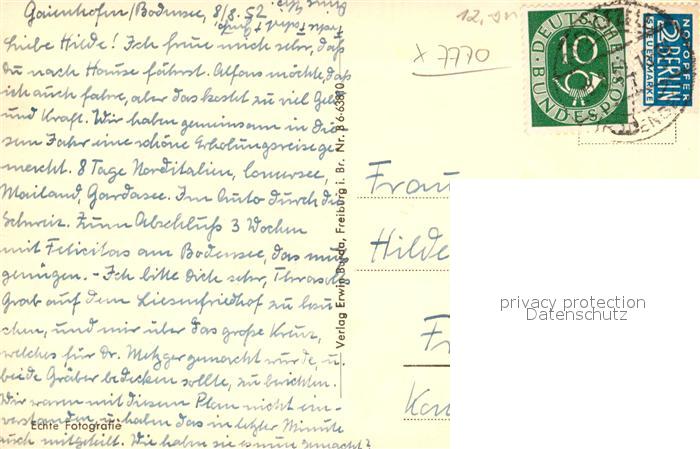 Gaienhofen/Bodensee, 8/8.52
Liebe Hilde! Ich freue mich sehr, daß
du nach Hause fährst. Alfons möchte, daß
ich auch fahre, aber das kostet zu viel Geld
und Kraft. Wir haben gemeinsam in die-
sem Jahr eine schöne Erholungsreise ge-
macht. 8 Tage Norditalien, Comersee,
Mailand, Gardasee. Im Auto durch die
Schweiz. Zum Abschluß 3 Wochen
mit Felicitas am Bodensee, das muß
genügen. - Ich bitte Dich sehr,
Grab auf dem Liesenfriedhof zu besu-
chen, und mir über das große Kreuz,
welches für Dr. Metzger gemacht wurde, u.
beide Gräber bedecken sollte, zu berichten.
Wir waren mit diesem Plan nicht ein-
verstanden, u. haben das in letzter Minute
auch mitgeteilt. Wie haben sie es nun gemacht?
Echte Fotografie
Verlag Erwin Burda, Freiburg i. Br. Nr. B 6-63810
x 7770
DEUTSCHE
10
BUNDESPOST
NOTOPFER
2 BERLIN
STEUERMARKE
Frau
Hilde
privacy protection
Datenschutz